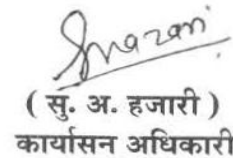 ( सु. अ. हजारी )
कार्यासन अधिकारी